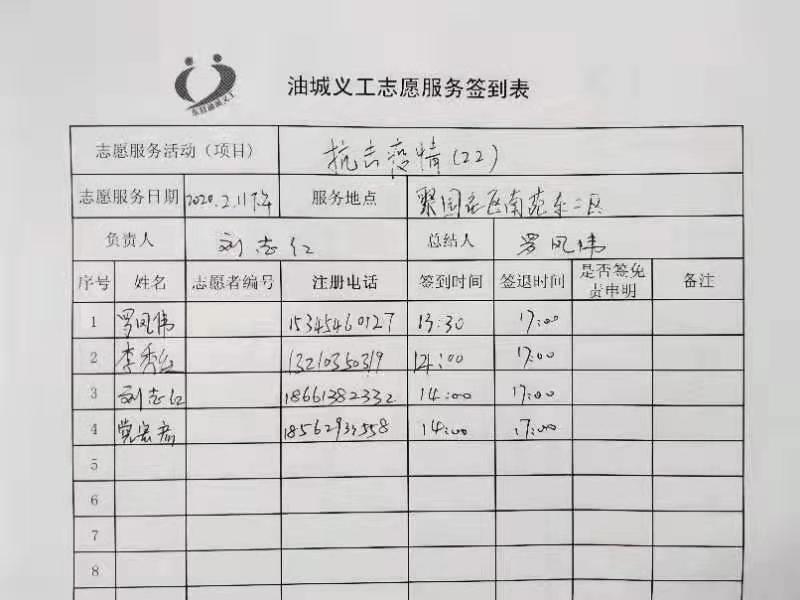 东营油城义工
油城义工志愿服务签到表
志愿服务活动（项目） 抗击疫情（22）
志愿服务日期 2020.2.11下午 服务地点 聚园社区南苑东二区
负责人 刘志红 总结人 罗凤伟
序号 姓名 志愿者编号 注册电话 签到时间 签退时间 是否签免责申明 备注
1 罗凤伟 15345460127 13:30 17:00
2 李秀红 13210350319 14:00 17:00
3 刘志红 18661382332 14:00 17:00
4 14:00 17:00
5
6
7
8